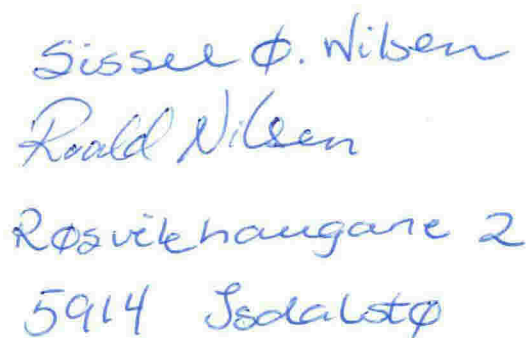 Sissel Ø. Nilsen
Roald Nilsen
Røsvikhaugane 2
5914 Isdalstø